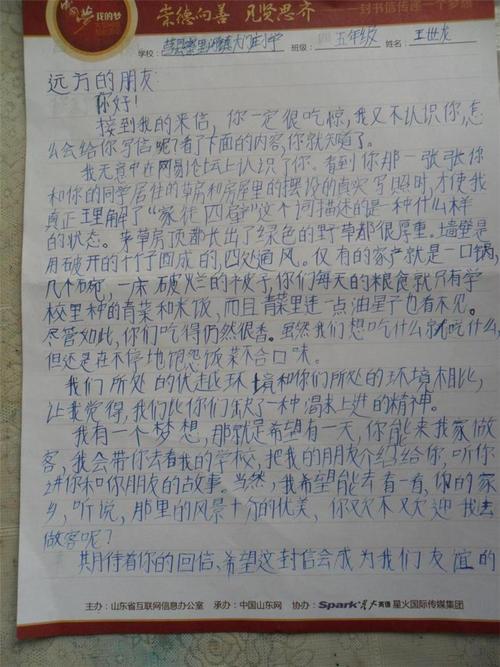 我的梦 崇德向善 见贤思齐 一封书信传递一个梦想
学校: 班级: 五年级 姓名: 王世龙
远方的朋友:
你好!
接到我的来信,你一定很吃惊,我又不认识你,怎
么会给你写信呢?看了下面的内容,你就知道了。
我无意中在网易论坛上认识了你。看到你那一张张你
和你的同学居住的草房和房屋里的摆设的真实写照时,才使我
真正理解了“家徒四壁”这个词描述的是一种什么样
的状态。茅草房顶都长出了绿色的野草都很厚重。墙壁是
用破开的竹子围成的,四处通风。仅有的家产就是一口锅,
几个碗,一本破烂的被子,你们每天的粮食就只有学
校里种的青菜和米饭,而且青菜里连一点油星子也看不见。
尽管如此,你们吃得仍然很香。虽然我们想吃什么就吃什么,
但还是在不停地饱怨饭菜不合口味。
我们所处的优越环境和你们所处的环境相比,
让我觉得,我们比你们缺了一种渴求上进的精神。
我有一个梦想,那就是希望有一天,你能来我家做
客,我会带你去看我的学校,把我的朋友介绍给你,听你
讲你和你朋友的故事。当然,我希望能去看一看,你的家
乡,听说,那里的风景十分的优美,你欢不欢迎我去
做客呢?
期待着你的回信,希望这封信会成为我们友谊的
主办:山东省互联网信息办公室 承办:中国山东网 协办:Spark星火英语 星火国际传媒集团